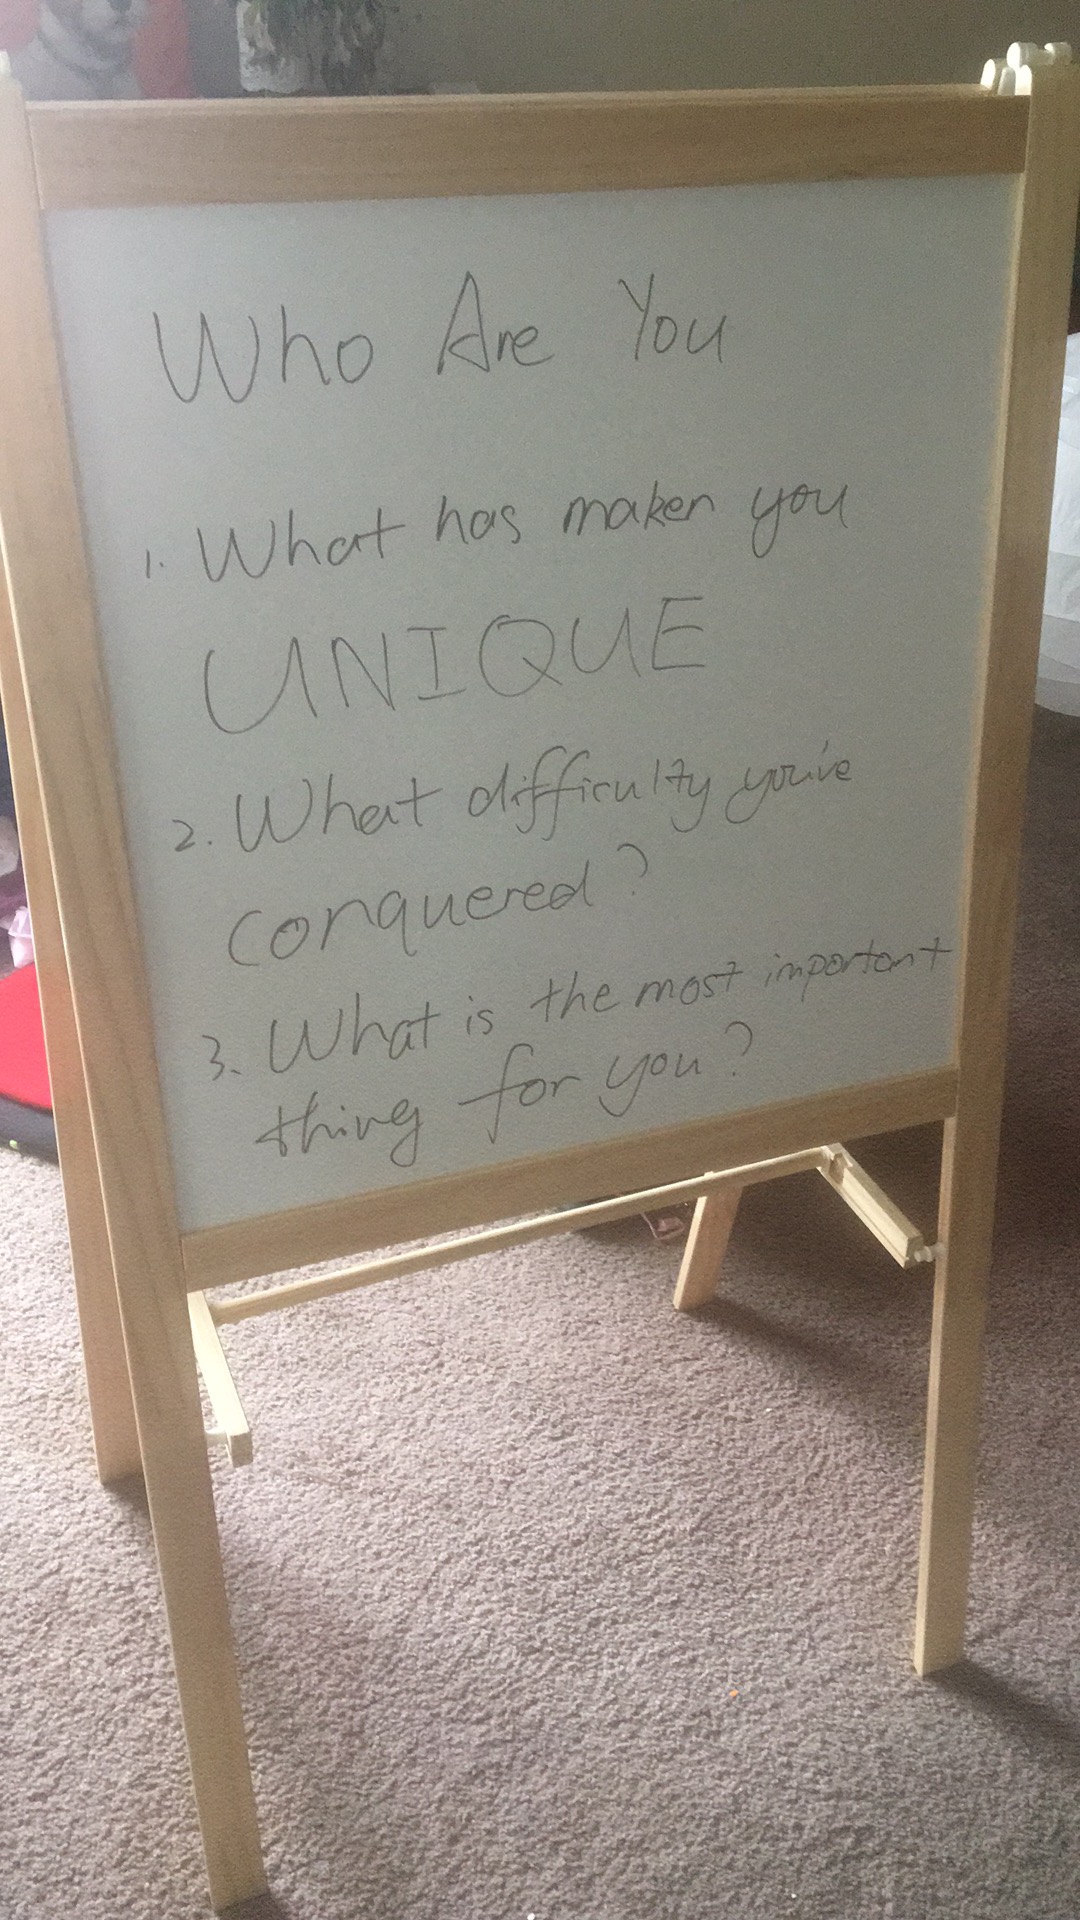 Who Are You
1. What has maken you
UNIQUE
2. What difficulty you've
conquered?
3. What is the most important
thing for you?